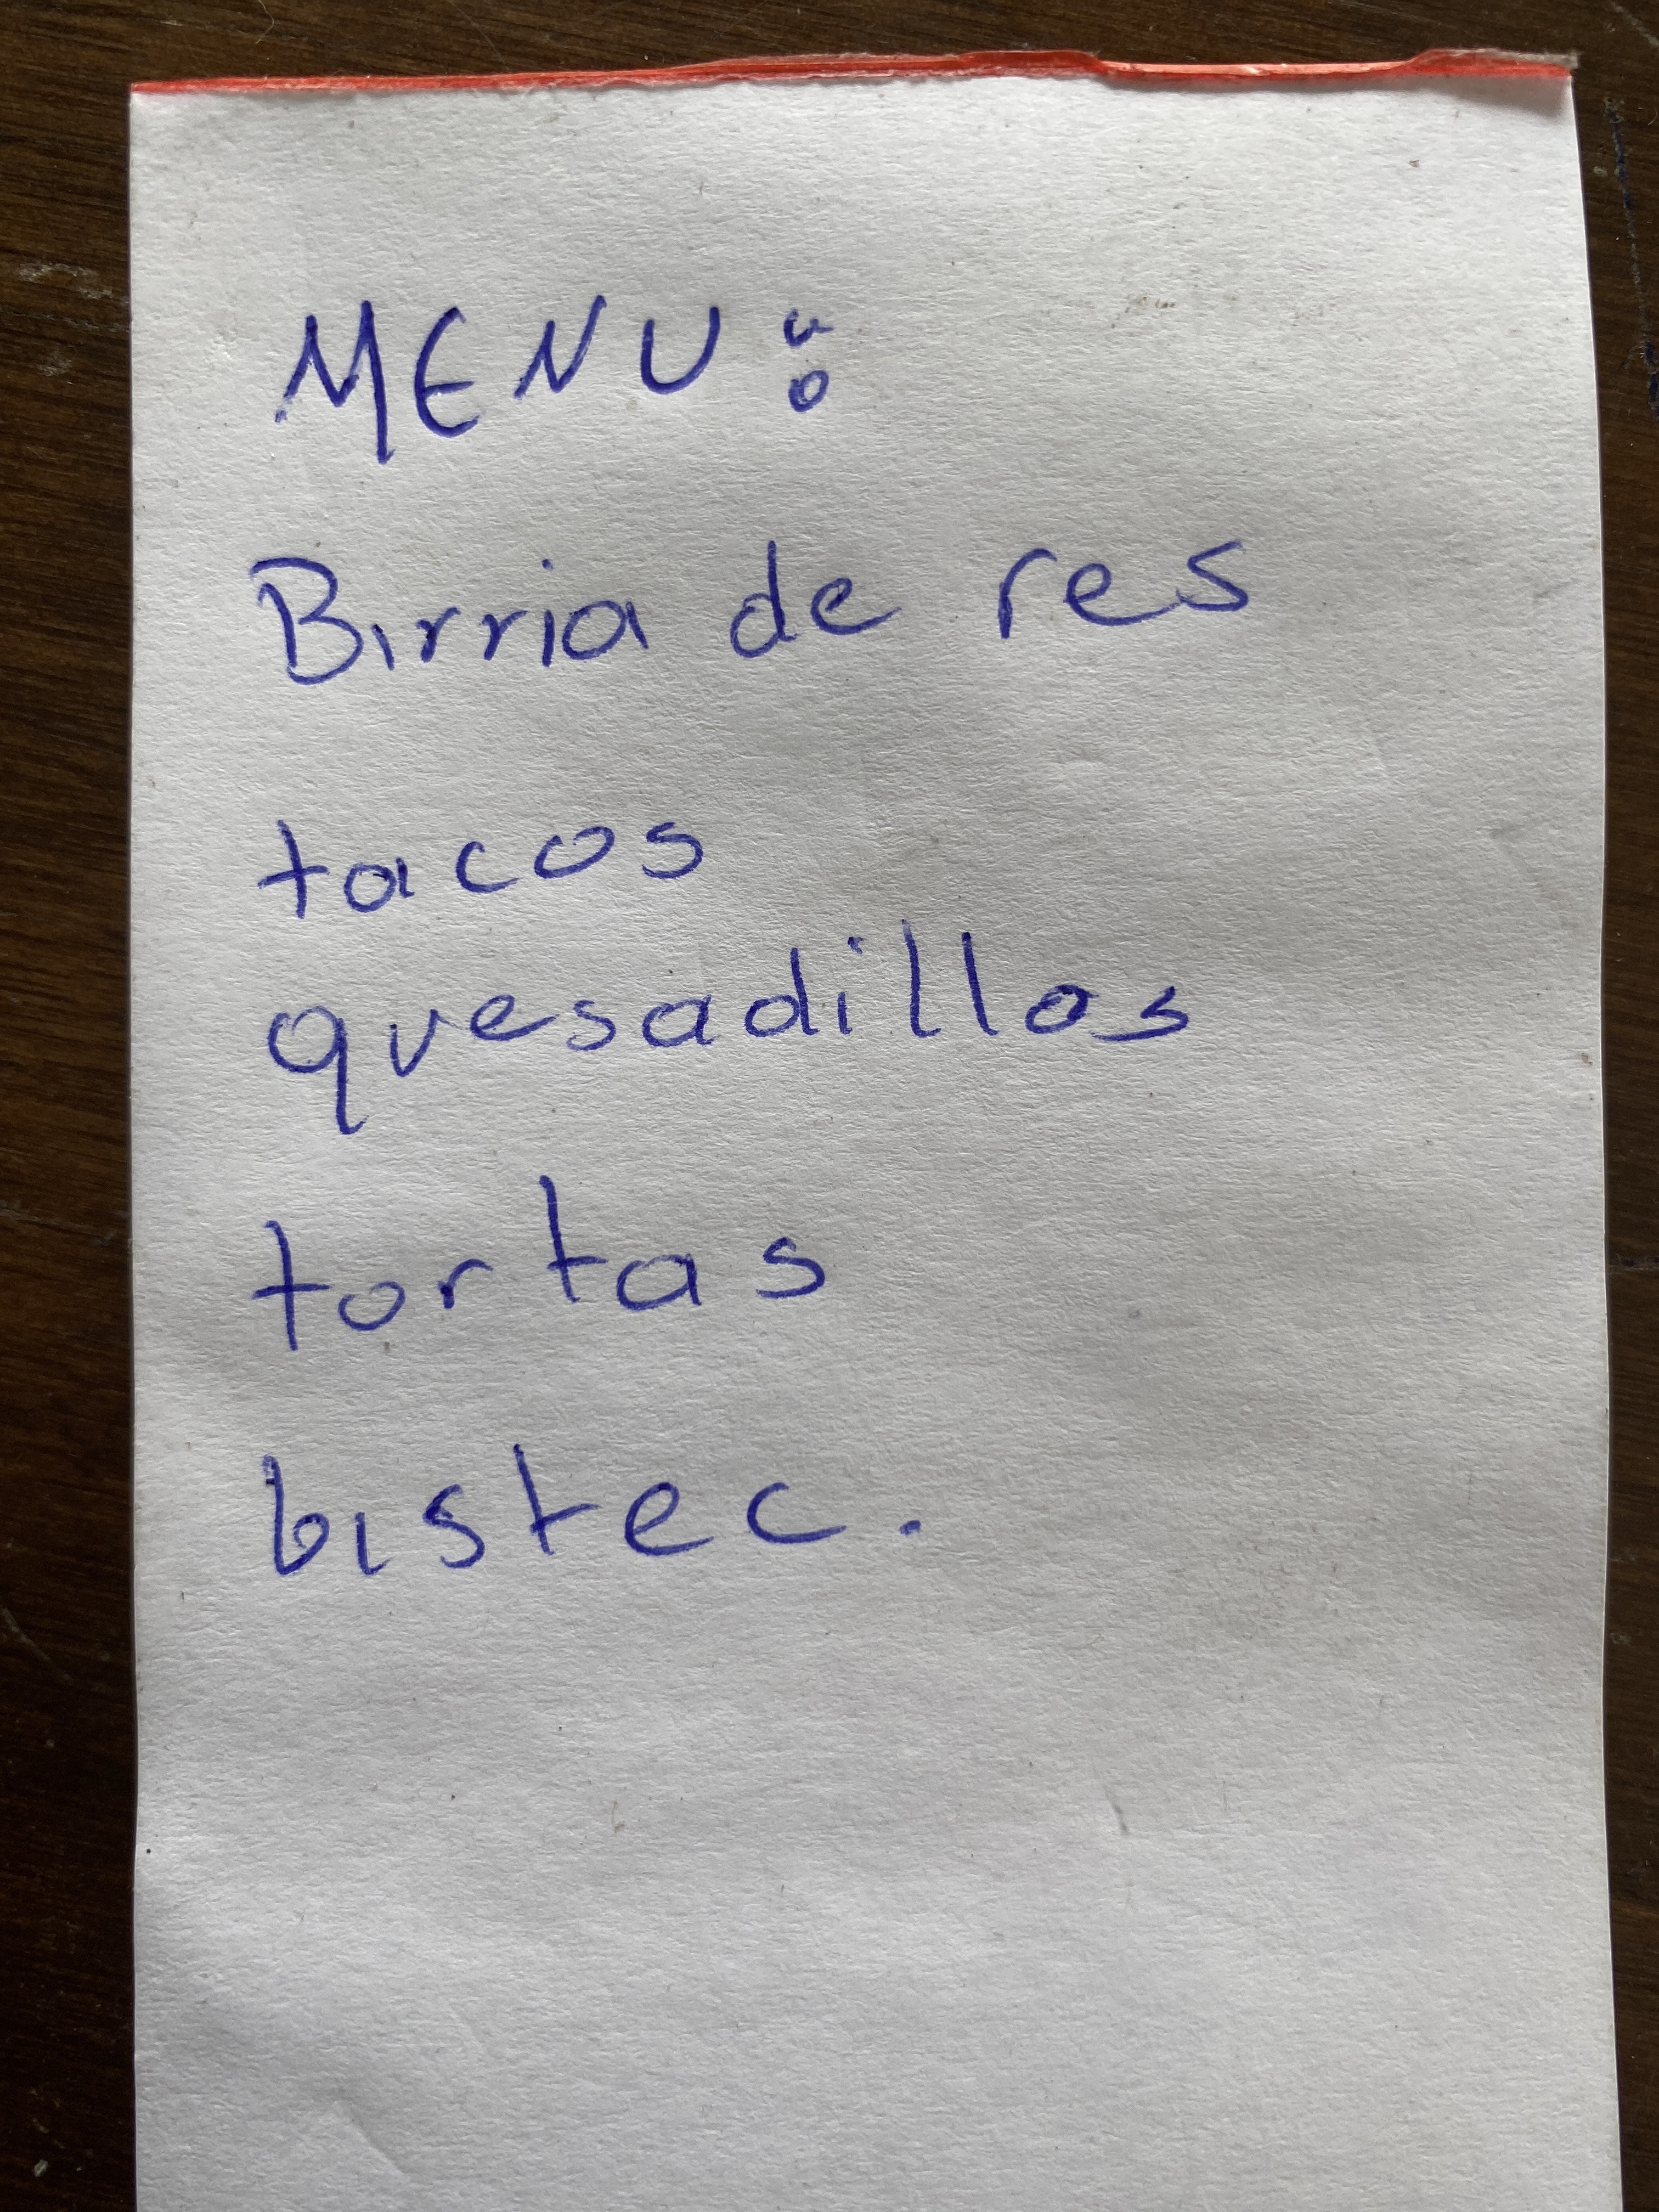 MENU:
Birria de res
tacos
quesadillas
tortas
bistec.